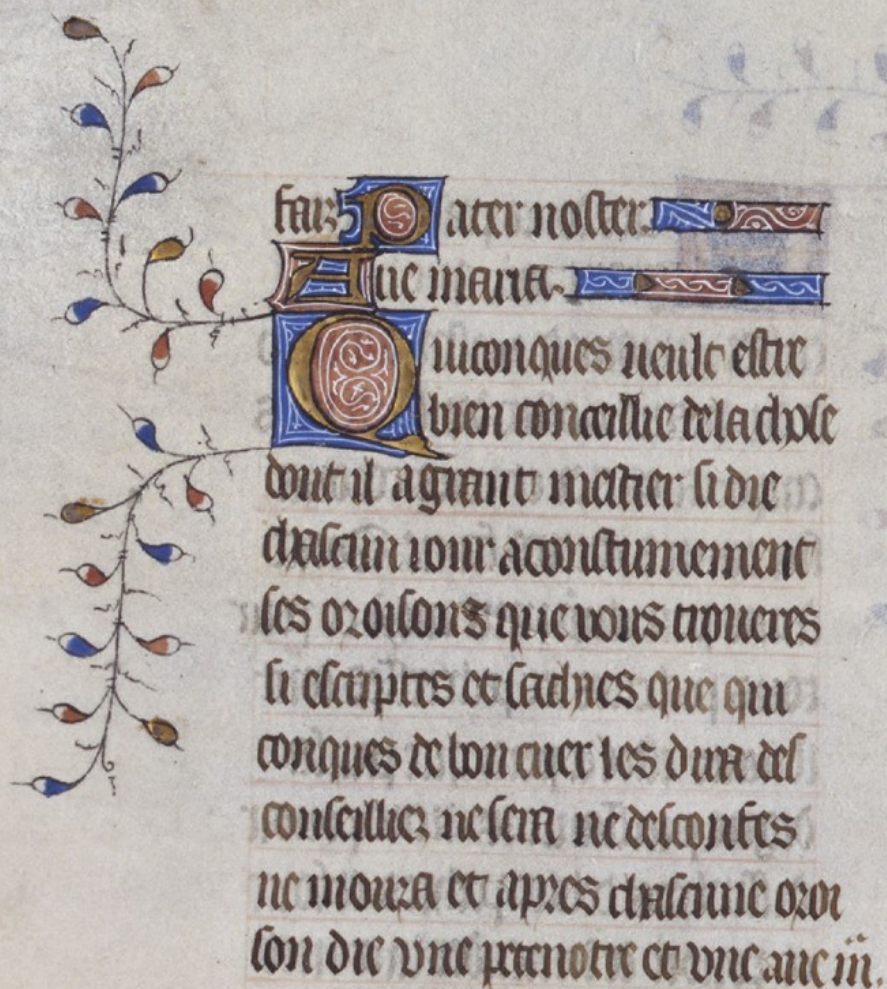 faiz Pater noster.
Aue maria.
Quiconques ueult estre
bien conceillie dela chose
dont il a grant mestier si die
chascun iour aconstumement
les oroisons que vous troueres
si escriptes et sachies que qui
conques de bon cuer les dira des
conseilliez ne sera ne desconfes
ne mourra et apres chascune oroi
son die vne petenotre et vne aue m̃.